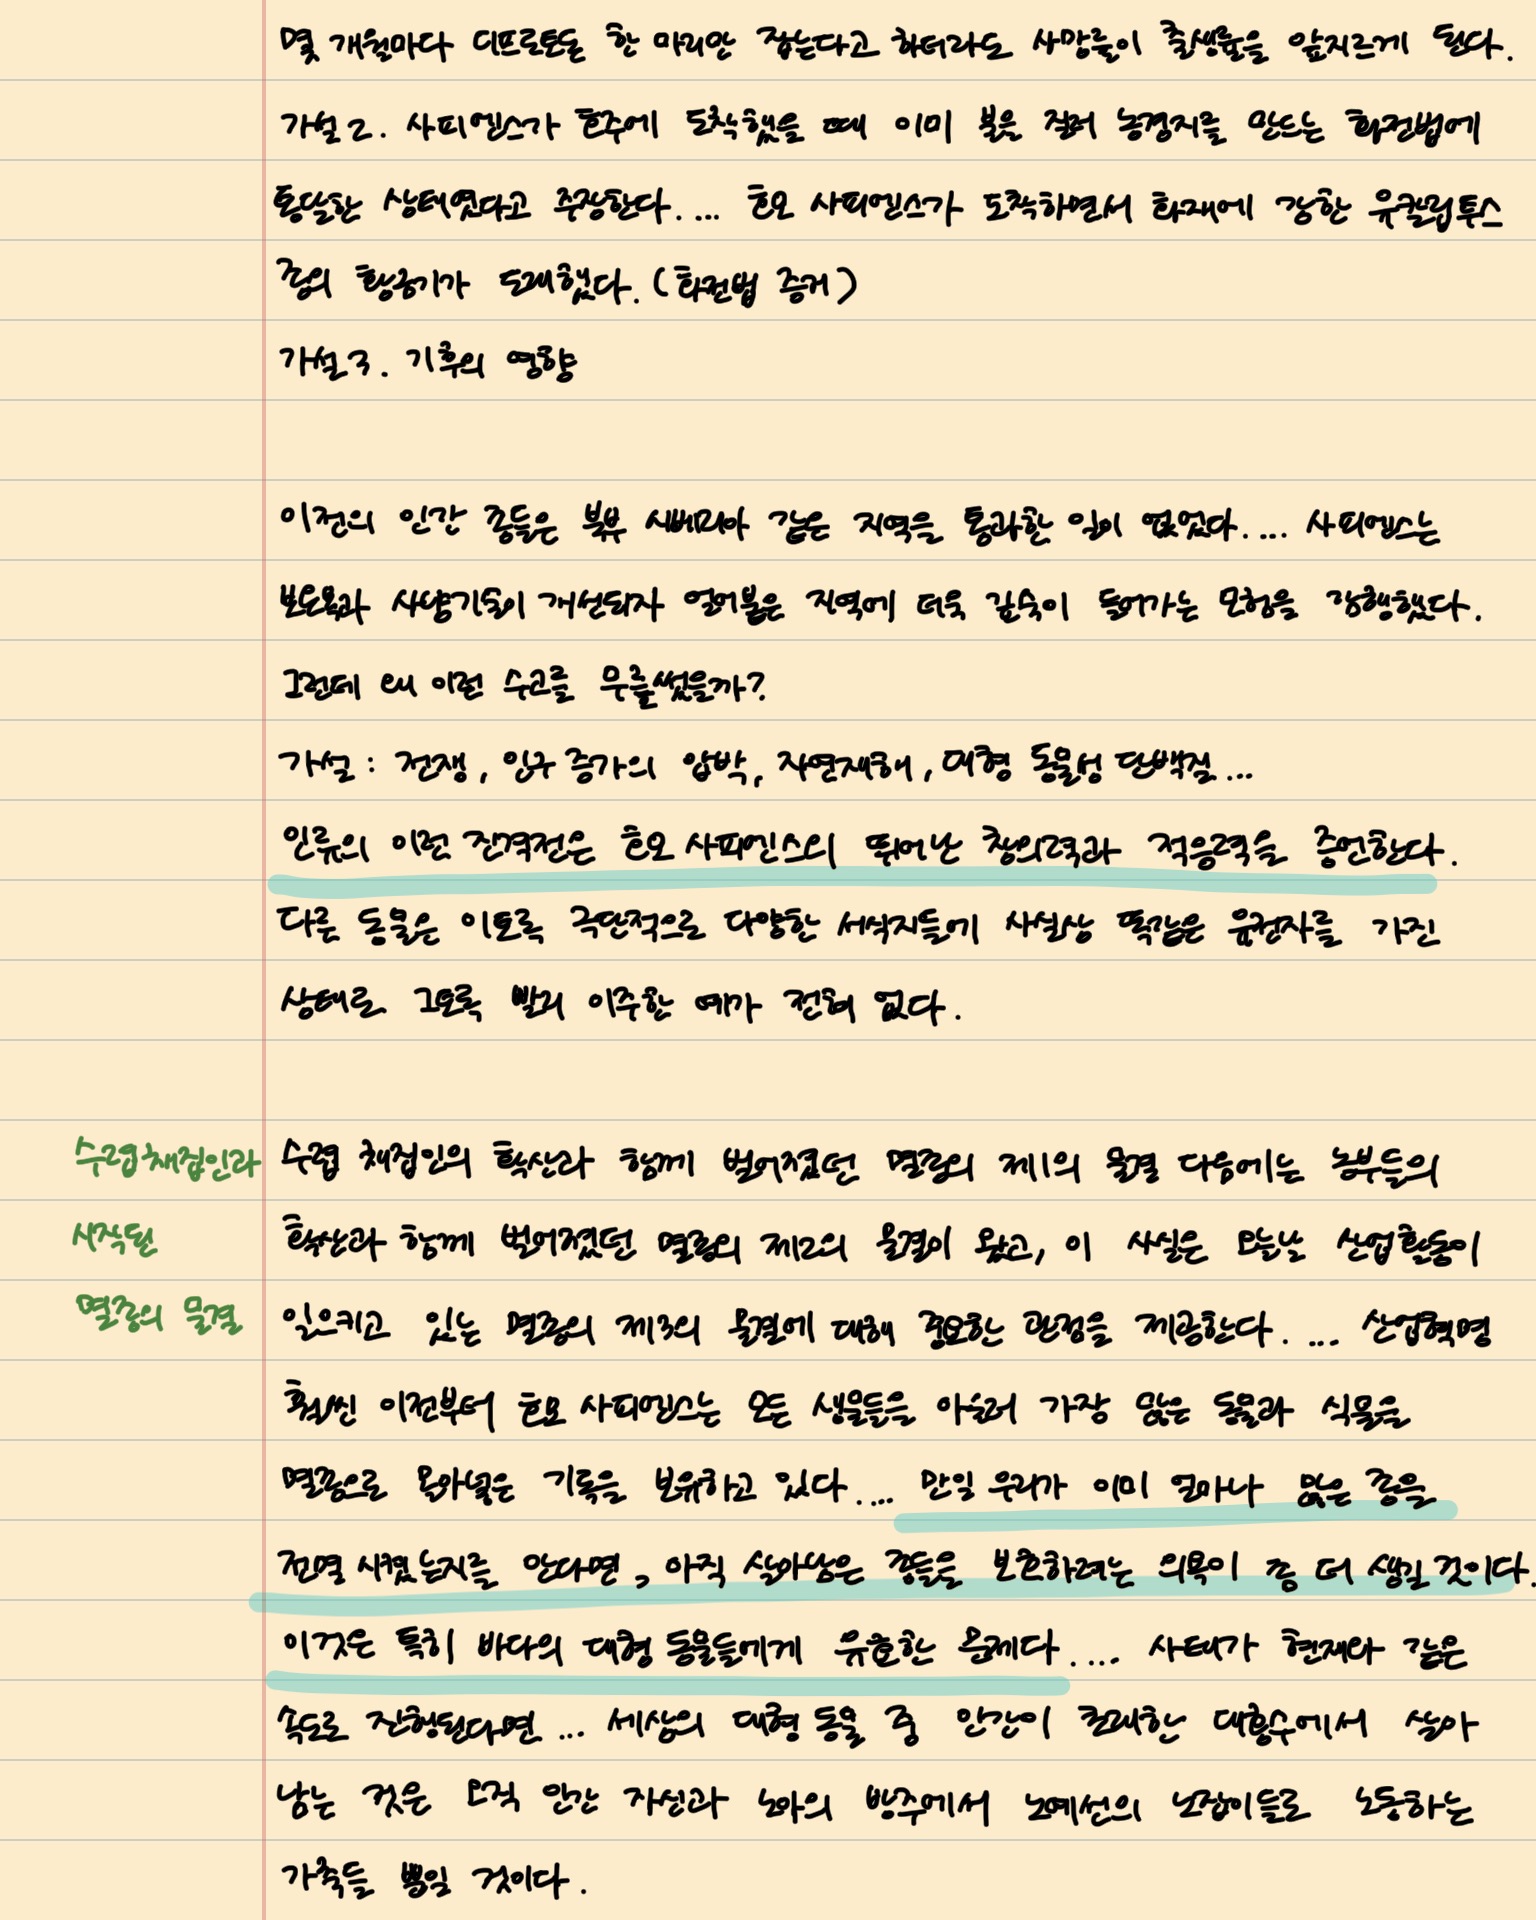 몇 개월마다 디프로토돈 한 마리만 잡는다고 하더라도 사망률이 출생률을 앞지르게 된다.
가설2. 사피엔스가 호주에 도착했을 때 이미 불을 질러 농경지를 만드는 화전법에
통달한 상태였다고 주장한다.... 호모 사피엔스가 도착하면서 화재에 강한 유칼립투스
종의 황금기가 도래했다. (화전법 증거)
가설3. 기후의 영향
이전의 인간 종들은 북부 시베리아 같은 지역을 통과한 일이 없었다.... 사피엔스는
보온복과 사냥기술이 개선되자 얼어붙은 지역에 더욱 깊숙이 들어가는 모험을 감행했다.
그런데 왜 이런 수고를 무릅썼을까?
가설 : 전쟁, 인구 증가의 압박, 자연재해, 대형 동물성 단백질...
인류의 이런 전격전은 호모 사피엔스의 뛰어난 창의력과 적응력을 증언한다.
다른 동물은 이토록 극단적으로 다양한 서식지들에 사실상 똑같은 유전자를 가진
상태로 그토록 빨리 이주한 예가 전혀 없다.
수렵채집인과 수렵 채집인의 확산과 함께 벌어졌던 멸종의 제1의 물결 다음에는 농부들의
시작된 확산과 함께 벌어졌던 멸종의 제2의 물결이 왔고, 이 사실은 오늘날 산업활동이
멸종의 물결 일으키고 있는 멸종의 제3의 물결에 대해 중요한 관점을 제공한다.... 산업혁명
훨씬 이전부터 호모 사피엔스는 모든 생물들을 아울러 가장 많은 동물과 식물을
멸종으로 몰아넣은 기록을 보유하고 있다.... 만일 우리가 이미 얼마나 많은 종을
전멸 시켰는지를 안다면, 아직 살아남은 종들을 보호하려는 의욕이 좀 더 생길 것이다.
이것은 특히 바다의 대형 동물들에게 유효한 문제다.... 사태가 현재와 같은
속도로 진행된다면 ... 세상의 대형 동물 중 인간이 초래한 대홍수에서 살아
남는 것은 오직 인간 자신과 노아의 방주에서 노예선의 노잡이들로 노동하는
가축들 뿐일 것이다.